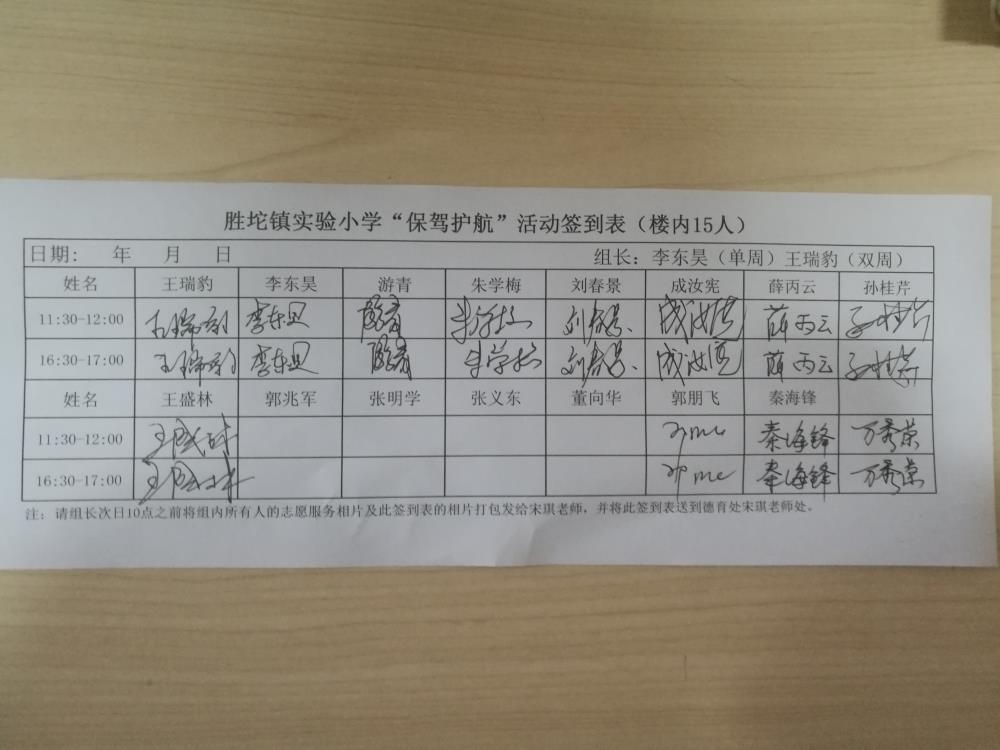 胜坨镇实验小学“保驾护航”活动签到表（楼内15人）
日期： 年 月 日 组长：李东昊（单周）王瑞豹（双周）
姓名 王瑞豹 李东昊 游青 朱学梅 刘春景 成汝宪 薛丙云 孙桂芹
11:30-12:00 王瑞豹 李东昊 朱学梅 刘春景 成汝宪 薛丙云 孙桂芹
16:30-17:00 王瑞豹 李东昊 朱学梅 刘春景 成汝宪 薛丙云 孙桂芹
姓名 王盛林 郭兆军 张明学 张义东 董向华 郭朋飞 秦海锋
11:30-12:00 王盛林 秦海锋 万秀荣
16:30-17:00 王盛林 秦海锋 万秀荣
注：请组长次日10点之前将组内所有人的志愿服务相片及此签到表的相片打包发给宋琪老师，并将此签到表送到德育处宋琪老师处。